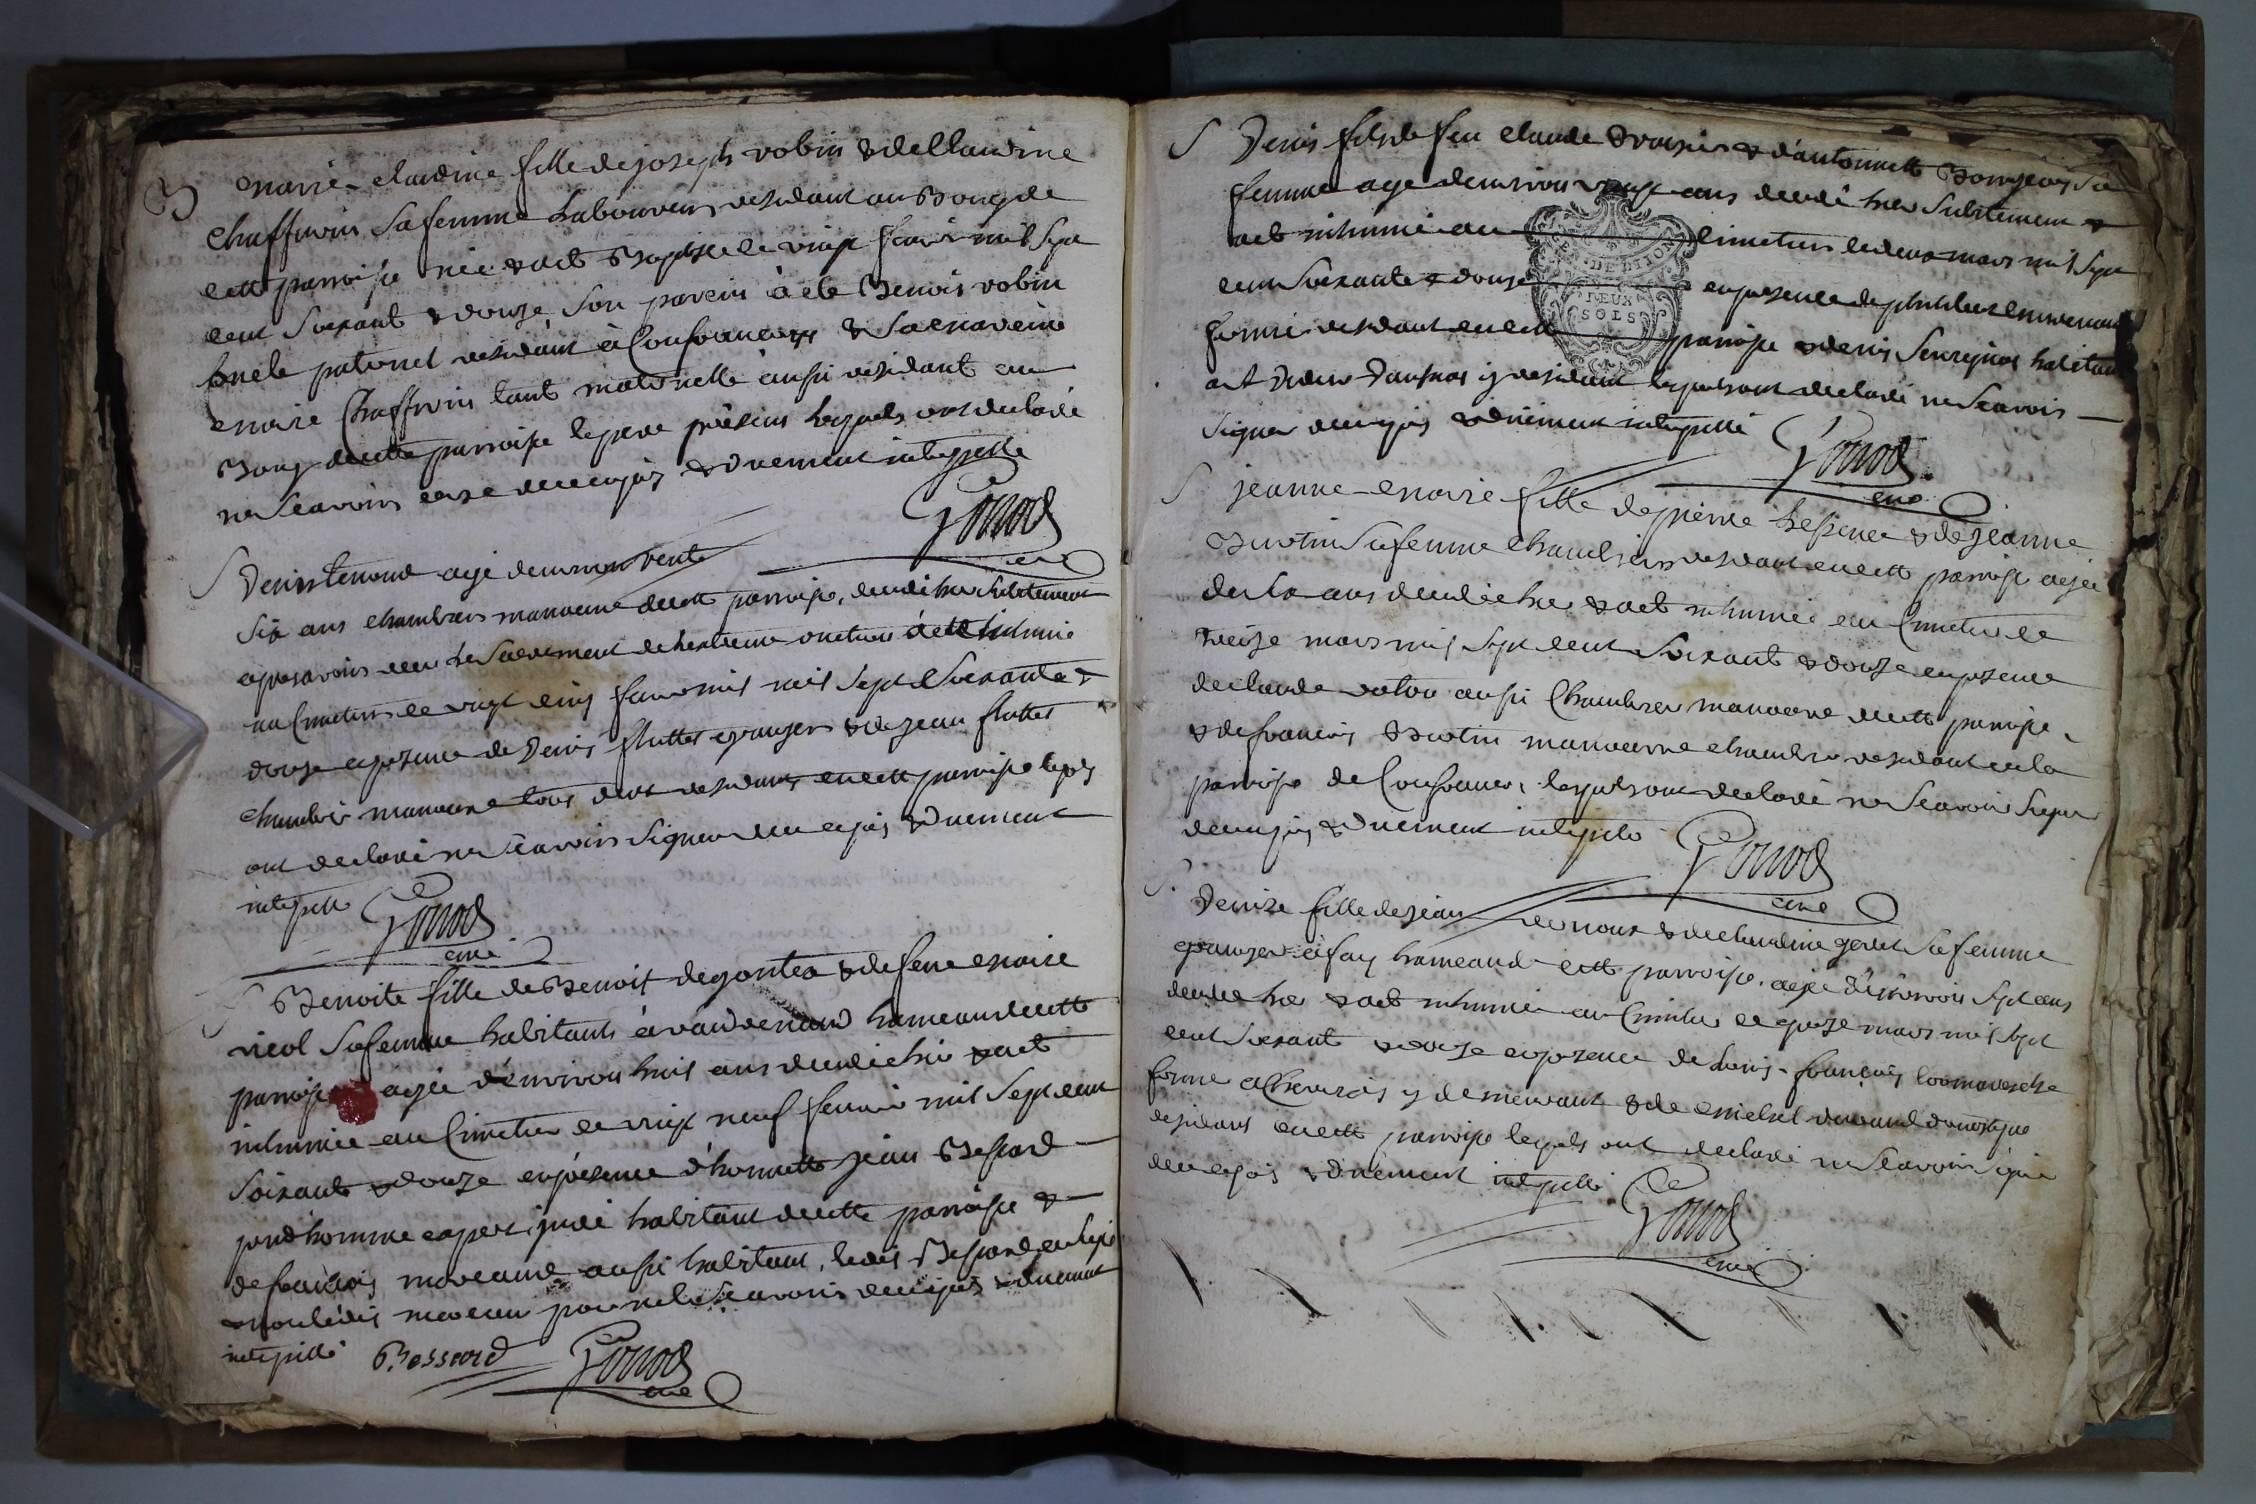 B marie-claudine fille de joseph robin & de Claudine
chaffurin sa femme laboureurs residant au Bourg de
cette parroisse née & a eté Baptisée le vingt fevrier mil sept
cent soixante & douze son parein à eté Benois robin
oncle paternel residant à Confrançon & sa mareine
marie Chaffurin tante maternelle aussi residant au
Bourg de cette parroisse le pere présent lesquels ont declaré
ne scavoir ecrire de ce enquis & duement interpellé
Gonod
curé
S Denis tenond agé d'environ trente
six ans chambrier manoeuvre de cette parroisse, decedé hier subitement
apres avoir reçu le sacrement de l'extreme onction a eté inhumé
au Cimetiere le vingt cinq fevrier mil sept soixante &
douze en presence de Denis fluttet granger & de jean fluttet
chambrier manoeuvre tous deux residants en cette parroisse lesquels
ont declaré ne scavoir signer de ce enquis & duement
interpellé Gonod
curé
S Benoite fille de Benoit degoutea & de feue marie
nicol sa femme habitants à hameau de cette
parroisse agée d'environ huit ans decedée hier & a eté
inhumée au Cimetiere le vingt neuf fevrier mil sept cent
soixante & douze en présence d'honnette jean Bessard
prud'homme expert juré habitant de cette parroisse &
de françois moreaux aussi habitant, ledit Bessard a signé
& non ledit moreau pour ne le scavoir de ce enquis & duement
interpellé Bessard Gonod
curé
S Denis fils de feu claude & d'antoinette sa
femme agé d'environ vingt ans decedé hier subitement &
a eté inhumé au cimetiere le deux mars mil sept
cent soixante & douze en presence de philibert
residant en cette parroisse & denis habitant
y residant lesquels ont declaré ne scavoir
signer de ce enquis & duement interpellé Gonod
curé
GEN. DE DIJON
DEUX
SOLS
S jeanne-marie fille de pierre & de jeanne
Buotin sa femme chambriers residant en cette parroisse agée
de six ans decedée hier & a eté inhumée au Cimetiere le
treize mars mil sept cent soixante & douze en presence
de claude aussi Chambrier manoeuvre de cette parroisse
& de françois Buotin manoeuvre chambrier residant en la
parroisse de Confrançon, lesquels ont declaré ne scavoir signer
de ce enquis & duement interpellé Gonod
curé
S Denise fille de jean & de claudine sa femme
granger à fay hameau de cette parroisse, agée d'environ sept ans
decedée hier & a eté inhumée au Cimetiere le quinze mars mil sept
cent soixante & douze en presence de denis-françois
y demeurant & de michel durand domestique
residants en cette parroisse lesquels ont declaré ne scavoir signer
de ce enquis & duement interpellé Gonod
curé